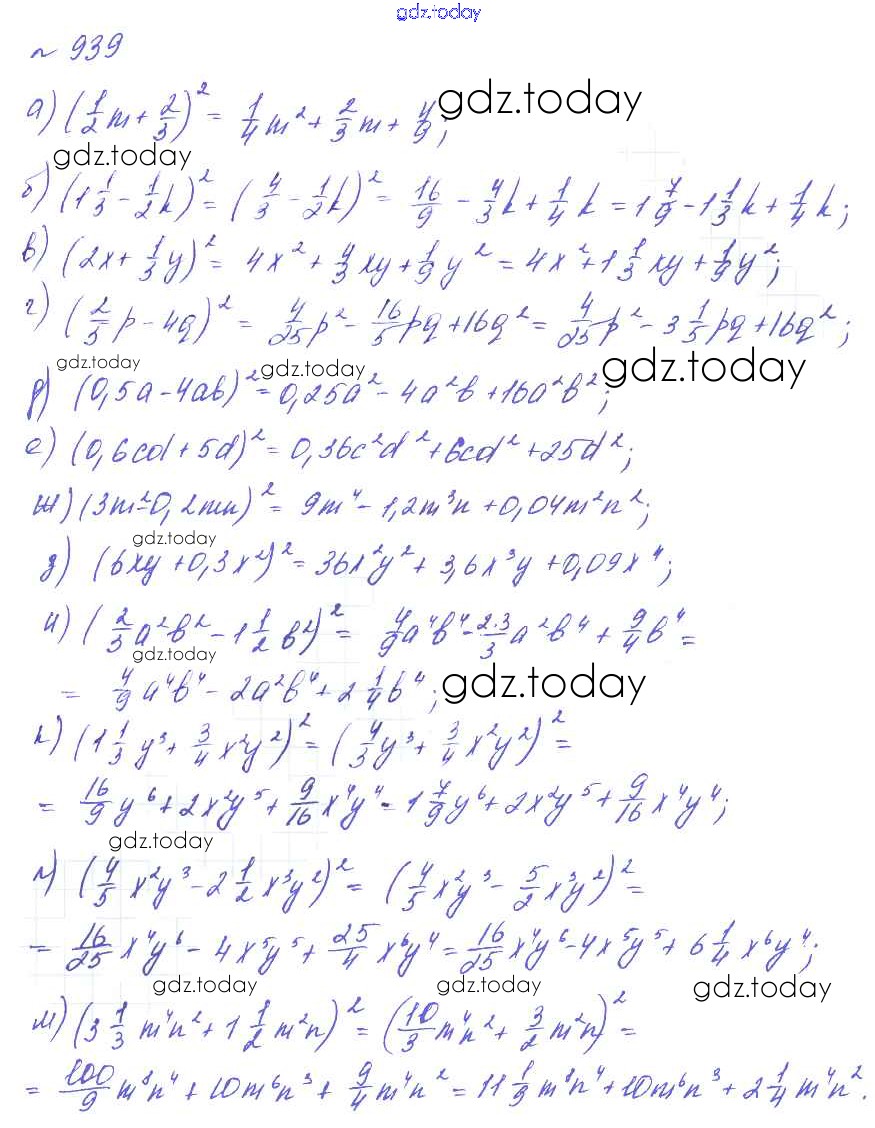 gdz.today
№ 939
а) (1/2 m + 2/3)² = 1/4 m² + 2/3 m + 4/9; gdz.today
gdz.today
б) (1 1/3 - 1/2 k)² = (4/3 - 1/2 k)² = 16/9 - 4/3 k + 1/4 k = 1 7/9 - 1 1/3 k + 1/4 k;
в) (2x + 1/3 y)² = 4x² + 4/3 xy + 1/9 y² = 4x² + 1 1/3 xy + 1/9 y²;
г) (2/5 p - 4q)² = 4/25 p² - 16/5 pq + 16q² = 4/25 p² - 3 1/5 pq + 16q²;
gdz.today gdz.today gdz.today
д) (0,5a - 4ab)² = 0,25a² - 4a²b + 16a²b²;
е) (0,6cd + 5d)² = 0,36c²d² + 6cd² + 25d²;
ж) (3m² - 0,2mn)² = 9m⁴ - 1,2m³n + 0,04m²n²;
gdz.today
з) (6xy + 0,3x²)² = 36x²y² + 3,6x³y + 0,09x⁴;
и) (2/3 a²b² - 1 1/2 b²)² = 4/9 a⁴b⁴ - 2·3/3 a²b⁴ + 9/4 b⁴ =
gdz.today
= 4/9 a⁴b⁴ - 2a²b⁴ + 2 1/4 b⁴; gdz.today
к) (1 1/3 y³ + 3/4 x²y²)² = (4/3 y³ + 3/4 x²y²)² =
= 16/9 y⁶ + 2x²y⁵ + 9/16 x⁴y⁴ = 1 7/9 y⁶ + 2x²y⁵ + 9/16 x⁴y⁴;
gdz.today
л) (4/5 x²y³ - 2 1/2 x³y²)² = (4/5 x²y³ - 5/2 x³y²)² =
= 16/25 x⁴y⁶ - 4x⁵y⁵ + 25/4 x⁶y⁴ = 16/25 x⁴y⁶ - 4x⁵y⁵ + 6 1/4 x⁶y⁴;
gdz.today gdz.today gdz.today
м) (3 1/3 m⁴n² + 1 1/2 m²n)² = (10/3 m⁴n² + 3/2 m²n)² =
= 100/9 m⁸n⁴ + 10m⁶n³ + 9/4 m⁴n² = 11 1/9 m⁸n⁴ + 10m⁶n³ + 2 1/4 m⁴n².